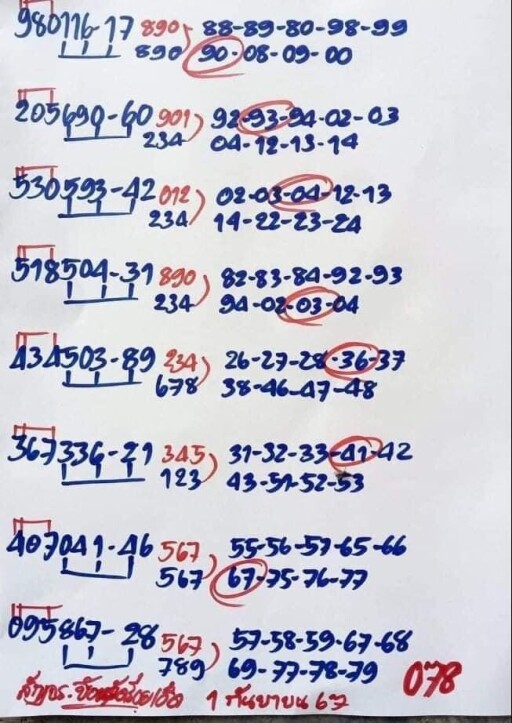 980116-17 890 88-89-80-98-99
890 90-08-09-00
205690-60 901 92-93-94-02-03
234 04-12-13-14
530593-42 012 02-03-04-12-13
234 14-22-23-24
518504-31 890 82-83-84-92-93
234 94-02-03-04
434503-89 234 26-27-28-36-37
678 38-46-47-48
367336-21 345 31-32-33-41-42
123 43-51-52-53
407041-46 567 55-56-57-65-66
567 67-75-76-77
095867-28 567 57-58-59-67-68
789 69-77-78-79 078
1 กันยายน 67